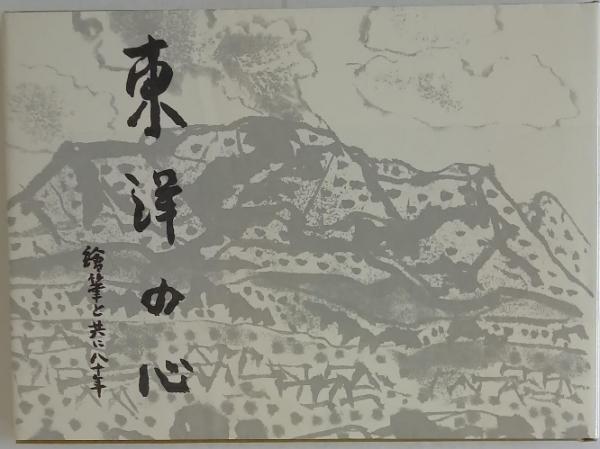 東洋の心
繪筆と共に八十年